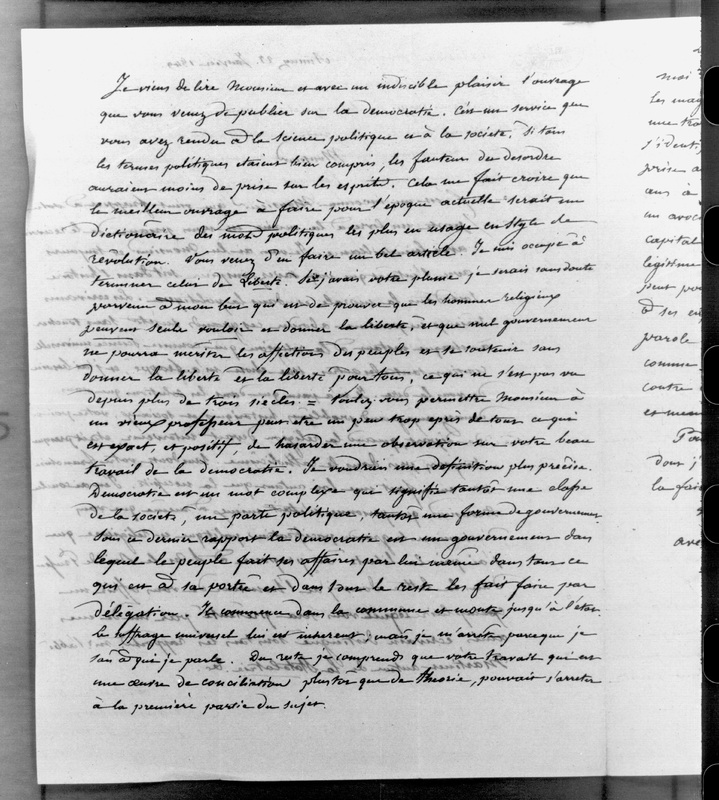 Je viens de lire Monsieur et avec un indicible plaisir l'ouvrage
que vous venez de publier sur la democratie. C'est un service que
vous avez rendu à la science politique et à la société. Si tous
les termes politiques etaient bien compris, les fauteurs du desordre
auraient moins de prise sur les esprits. Cela me fait croire que
le meilleur ouvrage à faire pour l'epoque actuelle serait un
dictionaire des mots politiques les plus en usage en style de
revolution. Vous venez d'en faire un bel article. Je suis occupé à
terminer celui de Liberté. Si j'avais votre plume je serais sans doute
parvenu à mon but qui est de prouver que les hommes religieux
peuvent seuls vouloir et donner la liberté, et que nul gouvernement
ne pourra meriter les affections des peuples et se soutenir sans
donner la liberté et la liberté pour tous, ce qui ne s'est pas vu
depuis plus de trois siècles. = voulez-vous permettre Monsieur à
un vieux professeur peut etre un peu trop epris de tout ce qui
est exact, et positif, de hasarder une observation sur votre beau
travail de la democratie. Je voudrais une definition plus précise.
Democratie est un mot complexe qui signifie tantôt une classe
de la société, un parti politique, tantôt une forme de gouvernement.
Sous ce dernier rapport la democratie est un gouvernement dans
lequel le peuple fait ses affaires par lui même dans tout ce
qui est à sa portée et dans tout le reste les fait faire par
délégation. Il commence dans la commune et monte jusqu'à l'état.
le suffrage universel lui est inherent, mais je m'arrête parceque je
sais à qui je parle. Du reste je comprends que votre travail qui est
une œuvre de conciliation plustôt que de theorie, pouvait s'arreter
à la première partie du sujet.
moi
les mag
une tra
s'identi
prise a
ans à
un avoc
capital
legitime
peut po
à ses en
parole
comme
contre
et meme
Pou
dont j'
la fair
ave